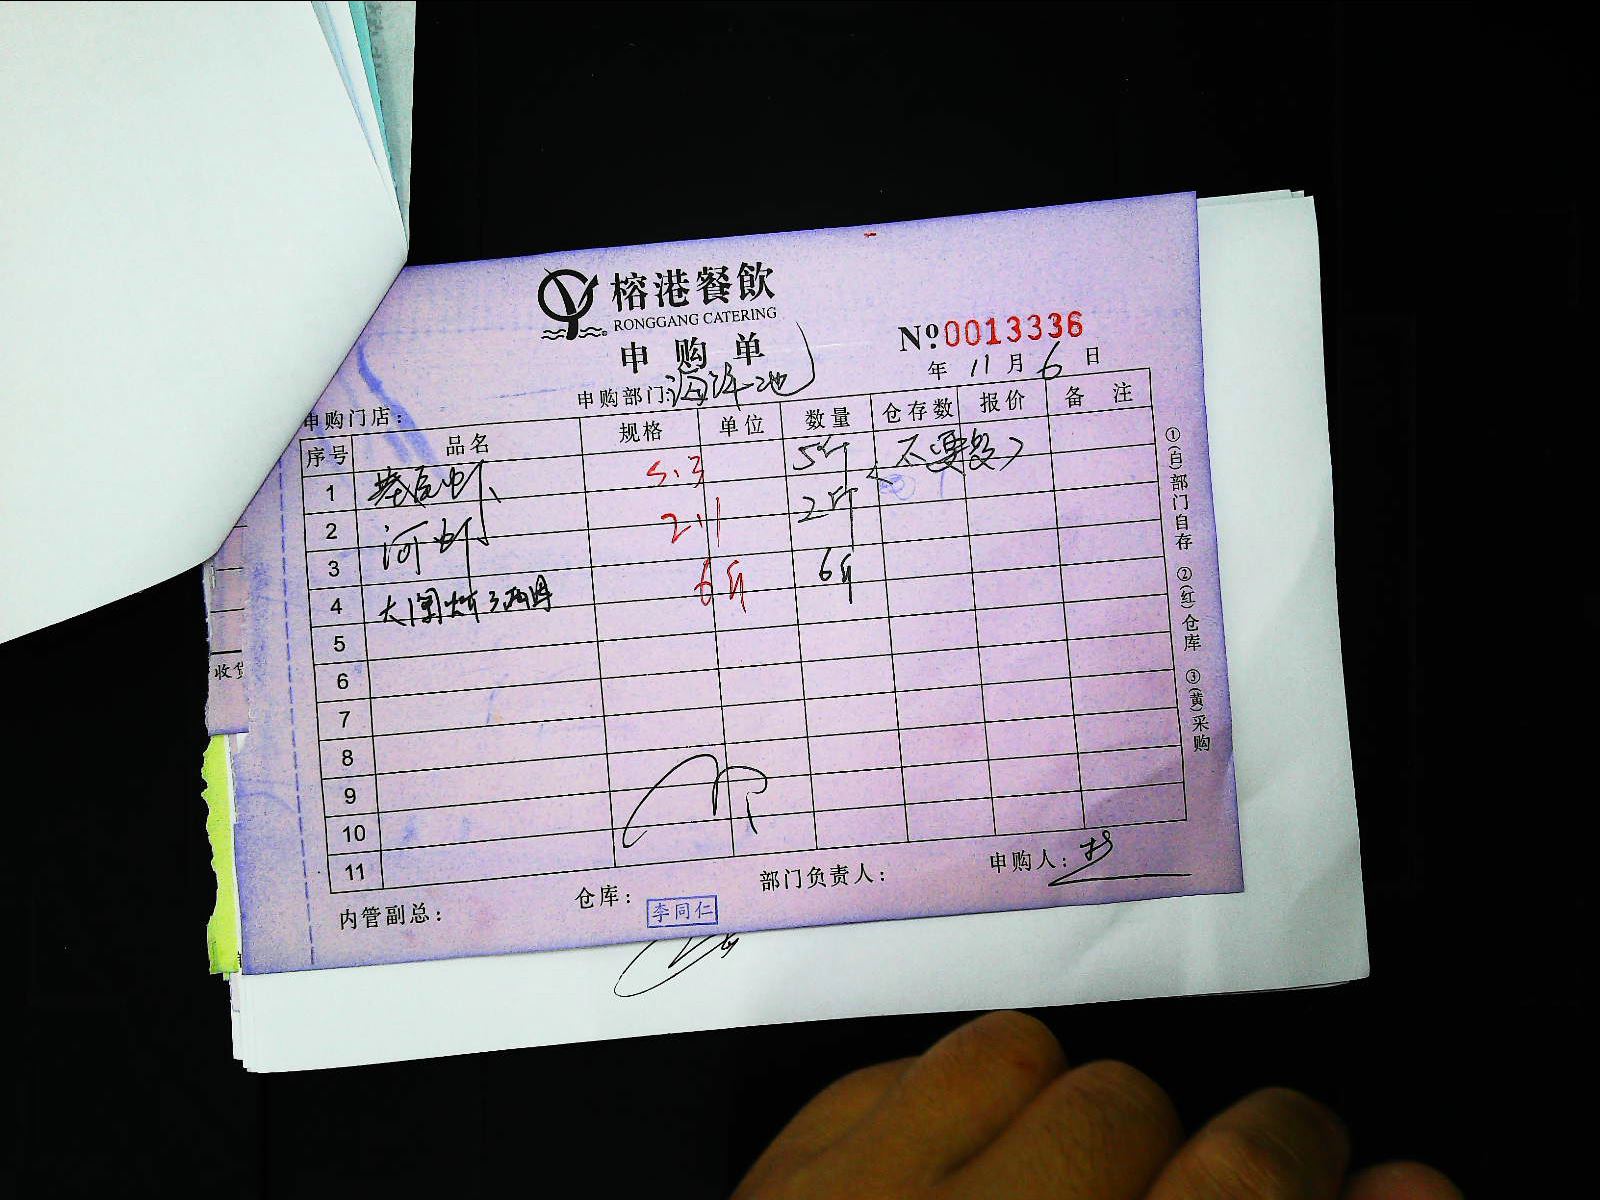 榕港餐飲
RONGGANG CATERING
申购单
Nº 0013336
年 11 月 6 日
申购门店：
申购部门：海洋池
序号 品名 规格 单位 数量 仓存数 报价 备注
1 基尾虾 5.3 5斤 (不要死)
2 河虾 2.1 2斤
3
4 大闸蟹 3两母 6斤 6斤
5
6
7
8
9
10
11
内管副总：
仓库： 李同仁
部门负责人：
申购人：
①(白)部门自存 ②(红)仓库 ③(黄)采购
收货